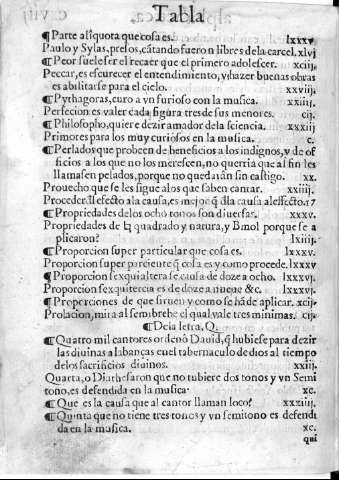 Tabla
¶ Parte aliquota que cosa es. lxxxv
Paulo y Sylas, presos, cãtando fueron libres de la carcel. xlvj
¶ Peor suele ser el recaer que el primero adolescer. xciij.
Peccar, es escurecer el entendimiento, y hazer buenas obras
es abilitarse para el cielo. xxviij.
¶ Pythagoras, curo a vn furioso con la musica. xxiiij.
Perfecion es valer cada figura tres de sus menores. cij.
¶ Philosopho, quiere dezir amador dela sciencia. xxxij
Primores para los muy curiosos en la musica. c.
¶ Perlados que probeen de beneficios a los indignos, y de of
ficios a los que no los merescen, no querria que al fin les
llamasen pelados, porque no quedarán sin castigo. xx.
Prouecho que se les sigue a los que saben cantar. xxiiij.
Proceder. el efecto a la causa, es mejor q̃ dla causa al effecto. 17
¶ Propriedades de los ocho tonos son diuersas. xxxv.
Propriedades de ♮ quadrado y natura, y Bmol porque se a
plicaron? lxiiij.
¶ Proporcion super particular que cosa es. lxxxv
Proporcion super parciente q̃ cosa es y como procede. lxxxv
¶ Proporcion sexquialtera se causa de doze a ocho. lxxxvj.
Proporcion sexquitercia es de doze a nueue &c. lxxxvj.
¶ Proporciones de que siruen y como se hã de aplicar. xcij.
Prolacion, mira al sembrebe el qual vale tres minimas. cij.
¶ De la letra, Q.
¶ Quatro mil cantores ordenó Dauid, q̃ hubiese para dezir
las diuinas alabanças en el tabernaculo de dios al tiempo
delos sacrificios diuinos. xxiij.
Quarta, o Diathesaron que no tubiere dos tonos y vn Semi
tono, es defendida en la musica. xc.
¶ Que es la causa que al cantor llaman loco? xxxiiij.
¶ Quinta que no tiene tres tonos y vn semitono es defendi
da en la musica. xc.
qui